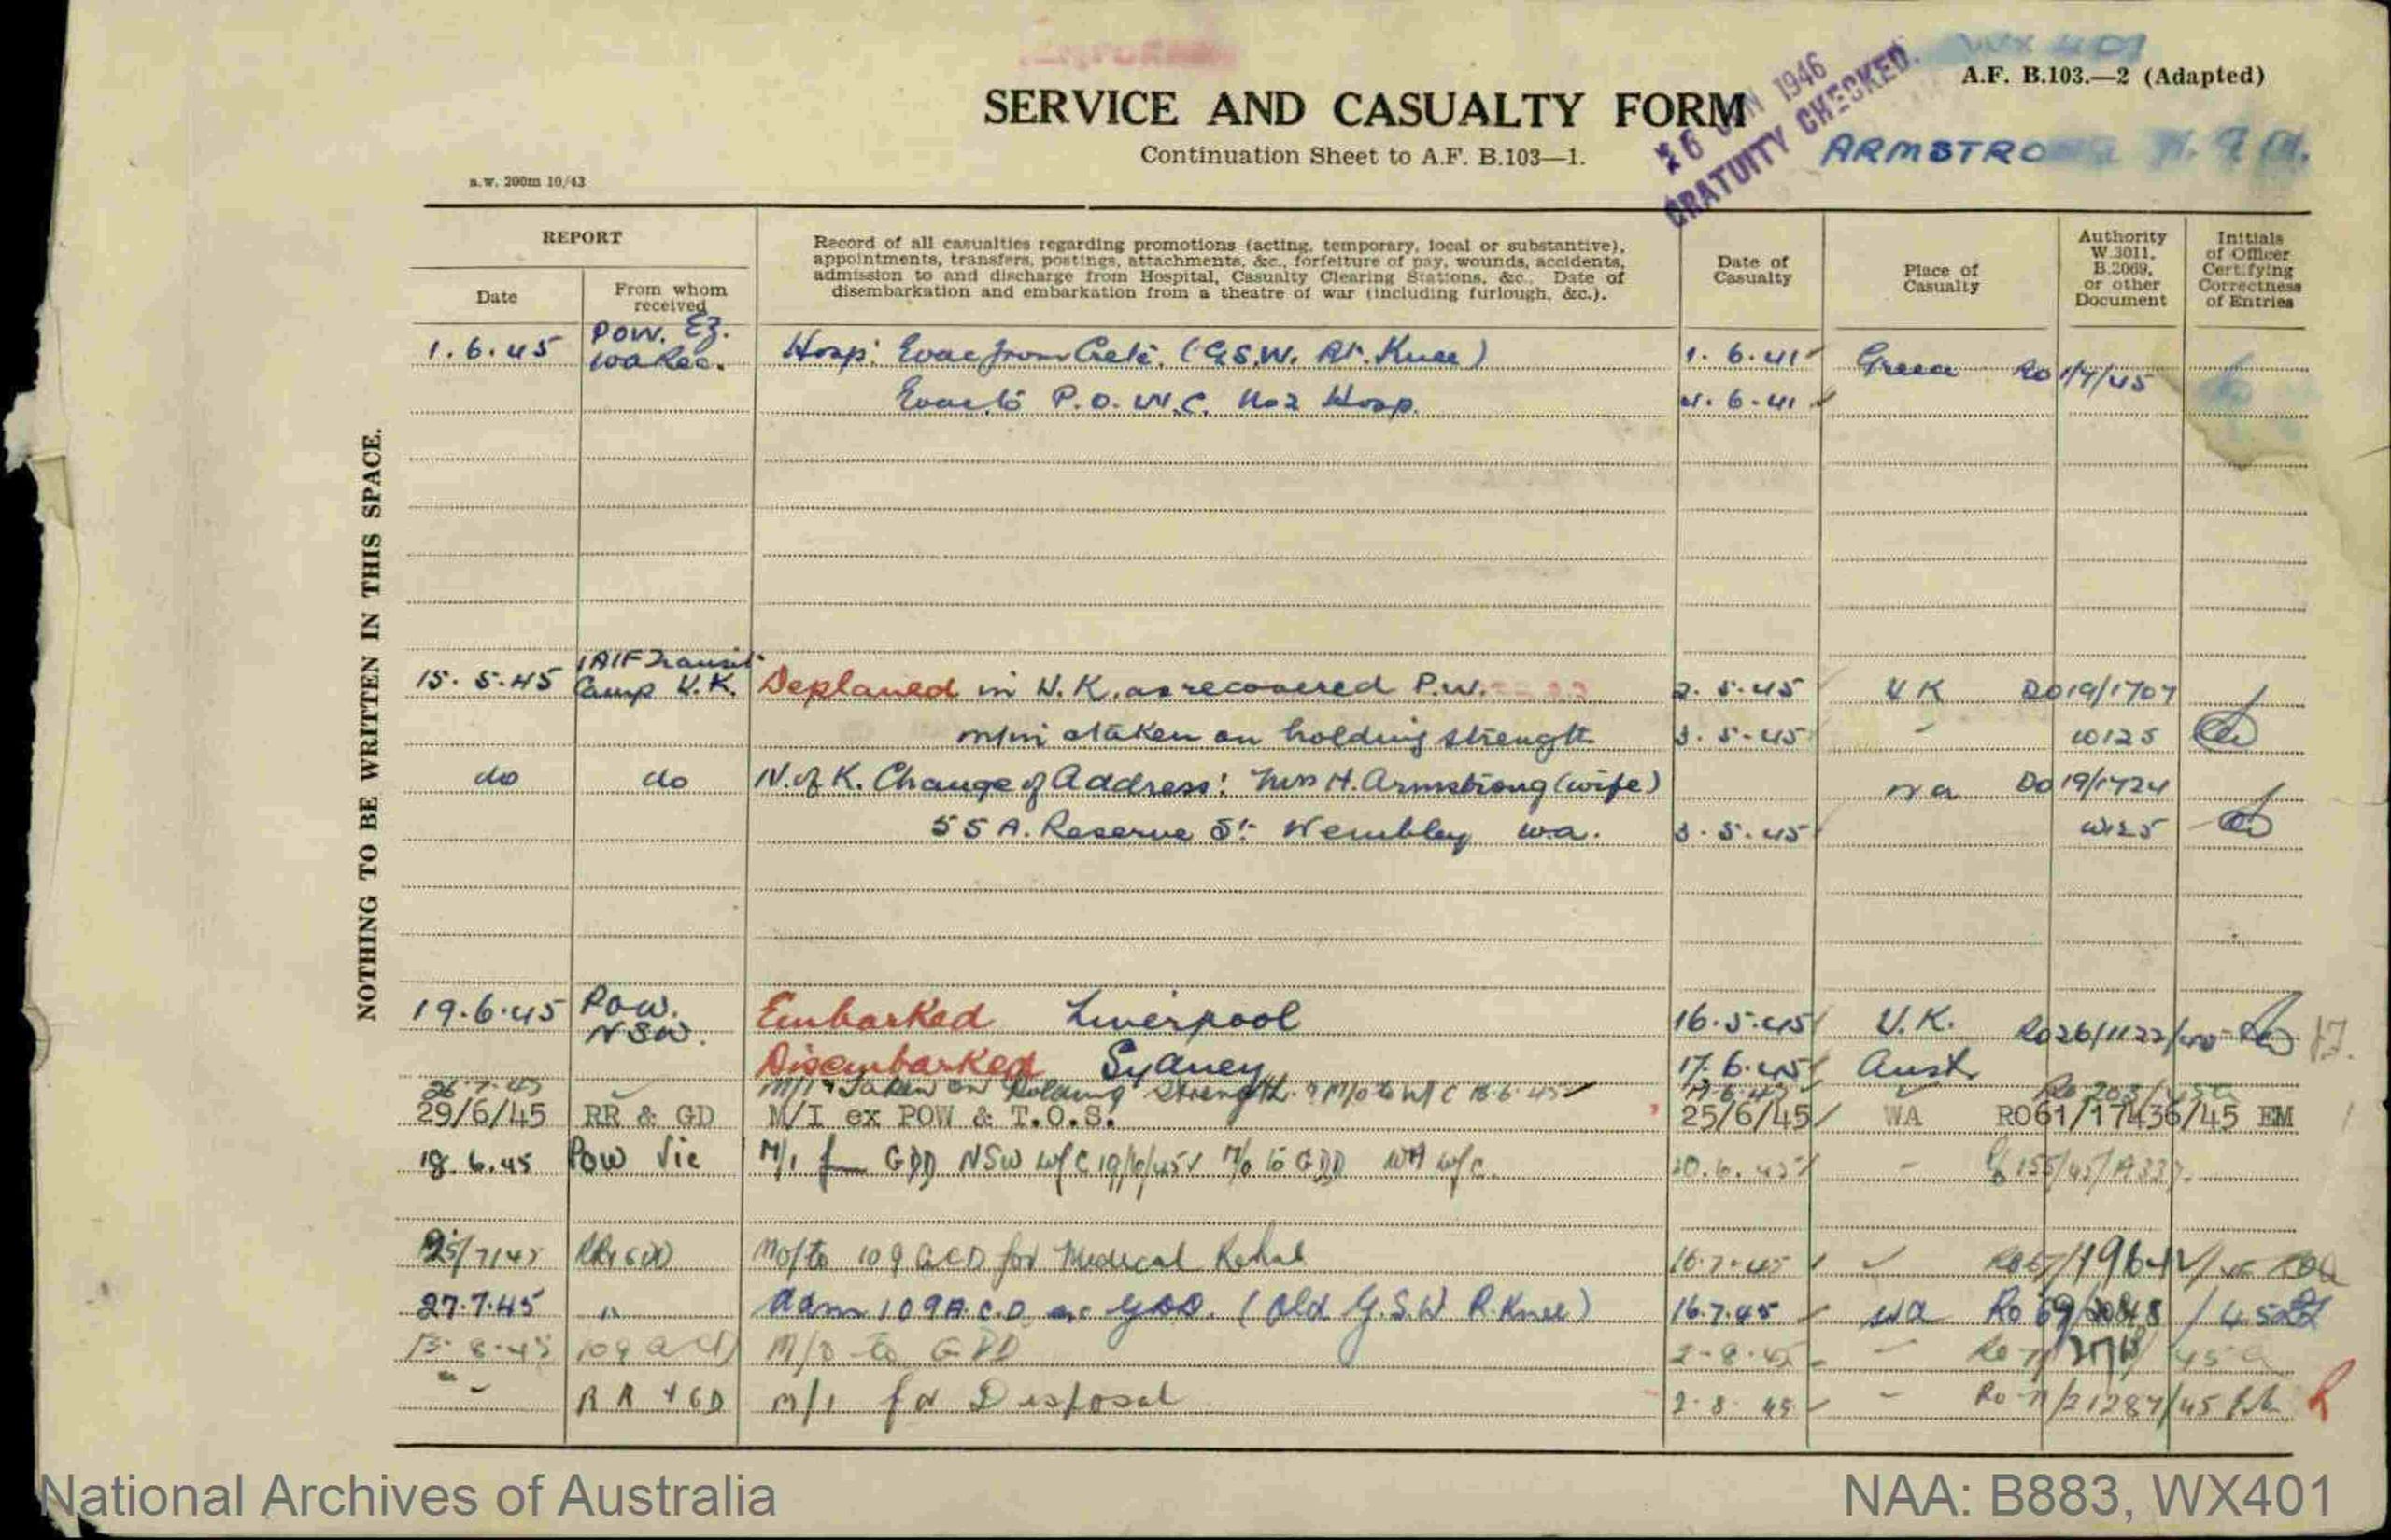 WX 401
A.F. B.103.—2 (Adapted)
SERVICE AND CASUALTY FORM
Continuation Sheet to A.F. B.103—1.
26 JUN 1946
GRATUITY CHECKED.
ARMSTRONG
s.w. 200m 10/43
NOTHING TO BE WRITTEN IN THIS SPACE.
REPORT
Date
From whom received
Record of all casualties regarding promotions (acting, temporary, local or substantive),
appointments, transfers, postings, attachments, &c., forfeiture of pay, wounds, accidents,
admission to and discharge from Hospital, Casualty Clearing Stations, &c. Date of
disembarkation and embarkation from a theatre of war (including furlough, &c.).
Date of Casualty
Place of Casualty
Authority W.3011, B.2069, or other Document
Initials of Officer Certifying Correctness of Entries
1.6.45 POW. Hosp: Evac from Crete. (G.S.W. Rt. Knee) 1.6.41 Greece Ro 1/7/45
Evac to P.O.W.C. No 2 Hosp. 4.6.41
15.5.45 1 AIF Transit Camp U.K. Deplaned in U.K. as recovered P.W. 2.5.45 UK DO19/1707
m/in & taken on holding strength 3.5.45 W125
do do N. of K. Change of Address: Mrs H. Armstrong (wife) DO 19/1724
55A. Reserve St. Wembley W.A. 3.5.45 W125
19.6.45 POW. NSW. Embarked Liverpool 16.5.45 U.K.
Disembarked Sydney 17.6.45 Aust
M/I & Taken on Holding Strength
29/6/45 RR & GD M/I ex POW & T.O.S. 25/6/45 WA RO61/17436/45 EM
18.6.45 POW Vic M/I GDD NSW w/e 19/6/45 M/O to GDD WA w/e 20.6.45
25/7/45 RR & GD M/O to 109 ACD for Medical Rehab 16.7.45
27.7.45 " Adm 109 A.C.D. GDD. (Old G.S.W R. Knee) 16.7.45 WA Ro
13.8.45 109 ACD M/O to GDD 2.8.45
RR & GD M/I for Disposal 2.8.45 Ro 71/21287/45
National Archives of Australia
NAA: B883, WX401